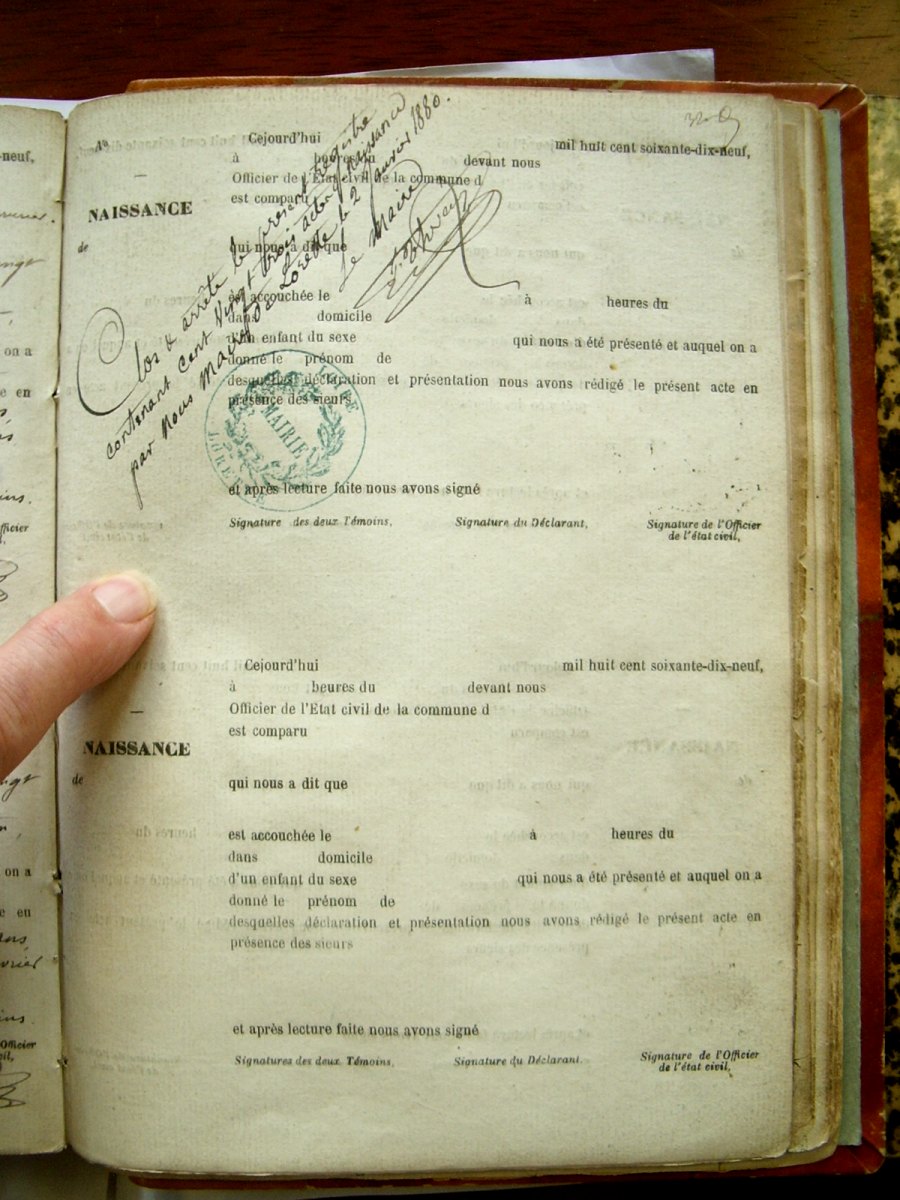 -neuf,
on a
e en
Officier
on a
e en
Officier
32
No
Cejourd'hui mil huit cent soixante-dix-neuf,
à heures du devant nous
Officier de l'Etat civil de la commune d
est comparu
NAISSANCE
de
qui nous a dit que
est accouchée le à heures du
dans domicile
d'un enfant du sexe qui nous a été présenté et auquel on a
donné le prénom de
desquelles déclaration et présentation nous avons rédigé le présent acte en
présence des sieurs
et après lecture faite nous avons signé
Signature des deux Témoins, Signature du Déclarant, Signature de l'Officier
de l'état civil,
Clos & arrêté le présent registre
contenant cent vingt trois actes de Naissance
par nous Maire de Lorette le 2 Janvier 1880.
Le Maire
MAIRIE
LORETTE
LOIRE
Cejourd'hui mil huit cent soixante-dix-neuf,
à heures du devant nous
Officier de l'Etat civil de la commune d
est comparu
NAISSANCE
de
qui nous a dit que
est accouchée le à heures du
dans domicile
d'un enfant du sexe qui nous a été présenté et auquel on a
donné le prénom de
desquelles déclaration et présentation nous avons rédigé le présent acte en
présence des sieurs
et après lecture faite nous avons signé
Signatures des deux Témoins, Signature du Déclarant. Signature de l'Officier
de l'état civil,